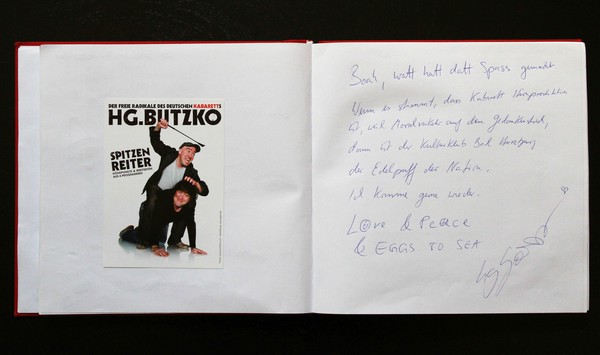 DER FREIE RADIKALE DES DEUTSCHEN KABARETTS
HG.BUTZKO
SPITZEN
REITER
Boah, watt hatt datt Spass gemacht.
Wenn es stimmt, dass Kabarett
ist, weil auf dem
dann ist der Kulturklub Bad
der Edelpuff der Nation.
Ich komme gerne wieder.
Love & Peace
& EGGS TO SEA